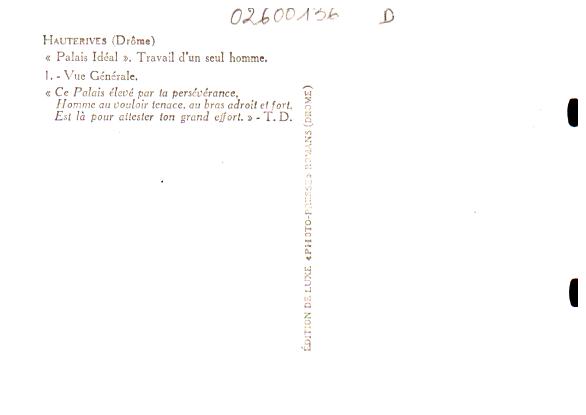 02600136 D
HAUTERIVES (Drôme)
« Palais Idéal ». Travail d'un seul homme.
1. - Vue Générale.
« Ce Palais élevé par ta persévérance,
Homme au vouloir tenace, au bras adroit et fort,
Est là pour attester ton grand effort. » - T. D.
ÉDITION DE LUXE «PHOTO-PRESSE» ROMANS (DROME)